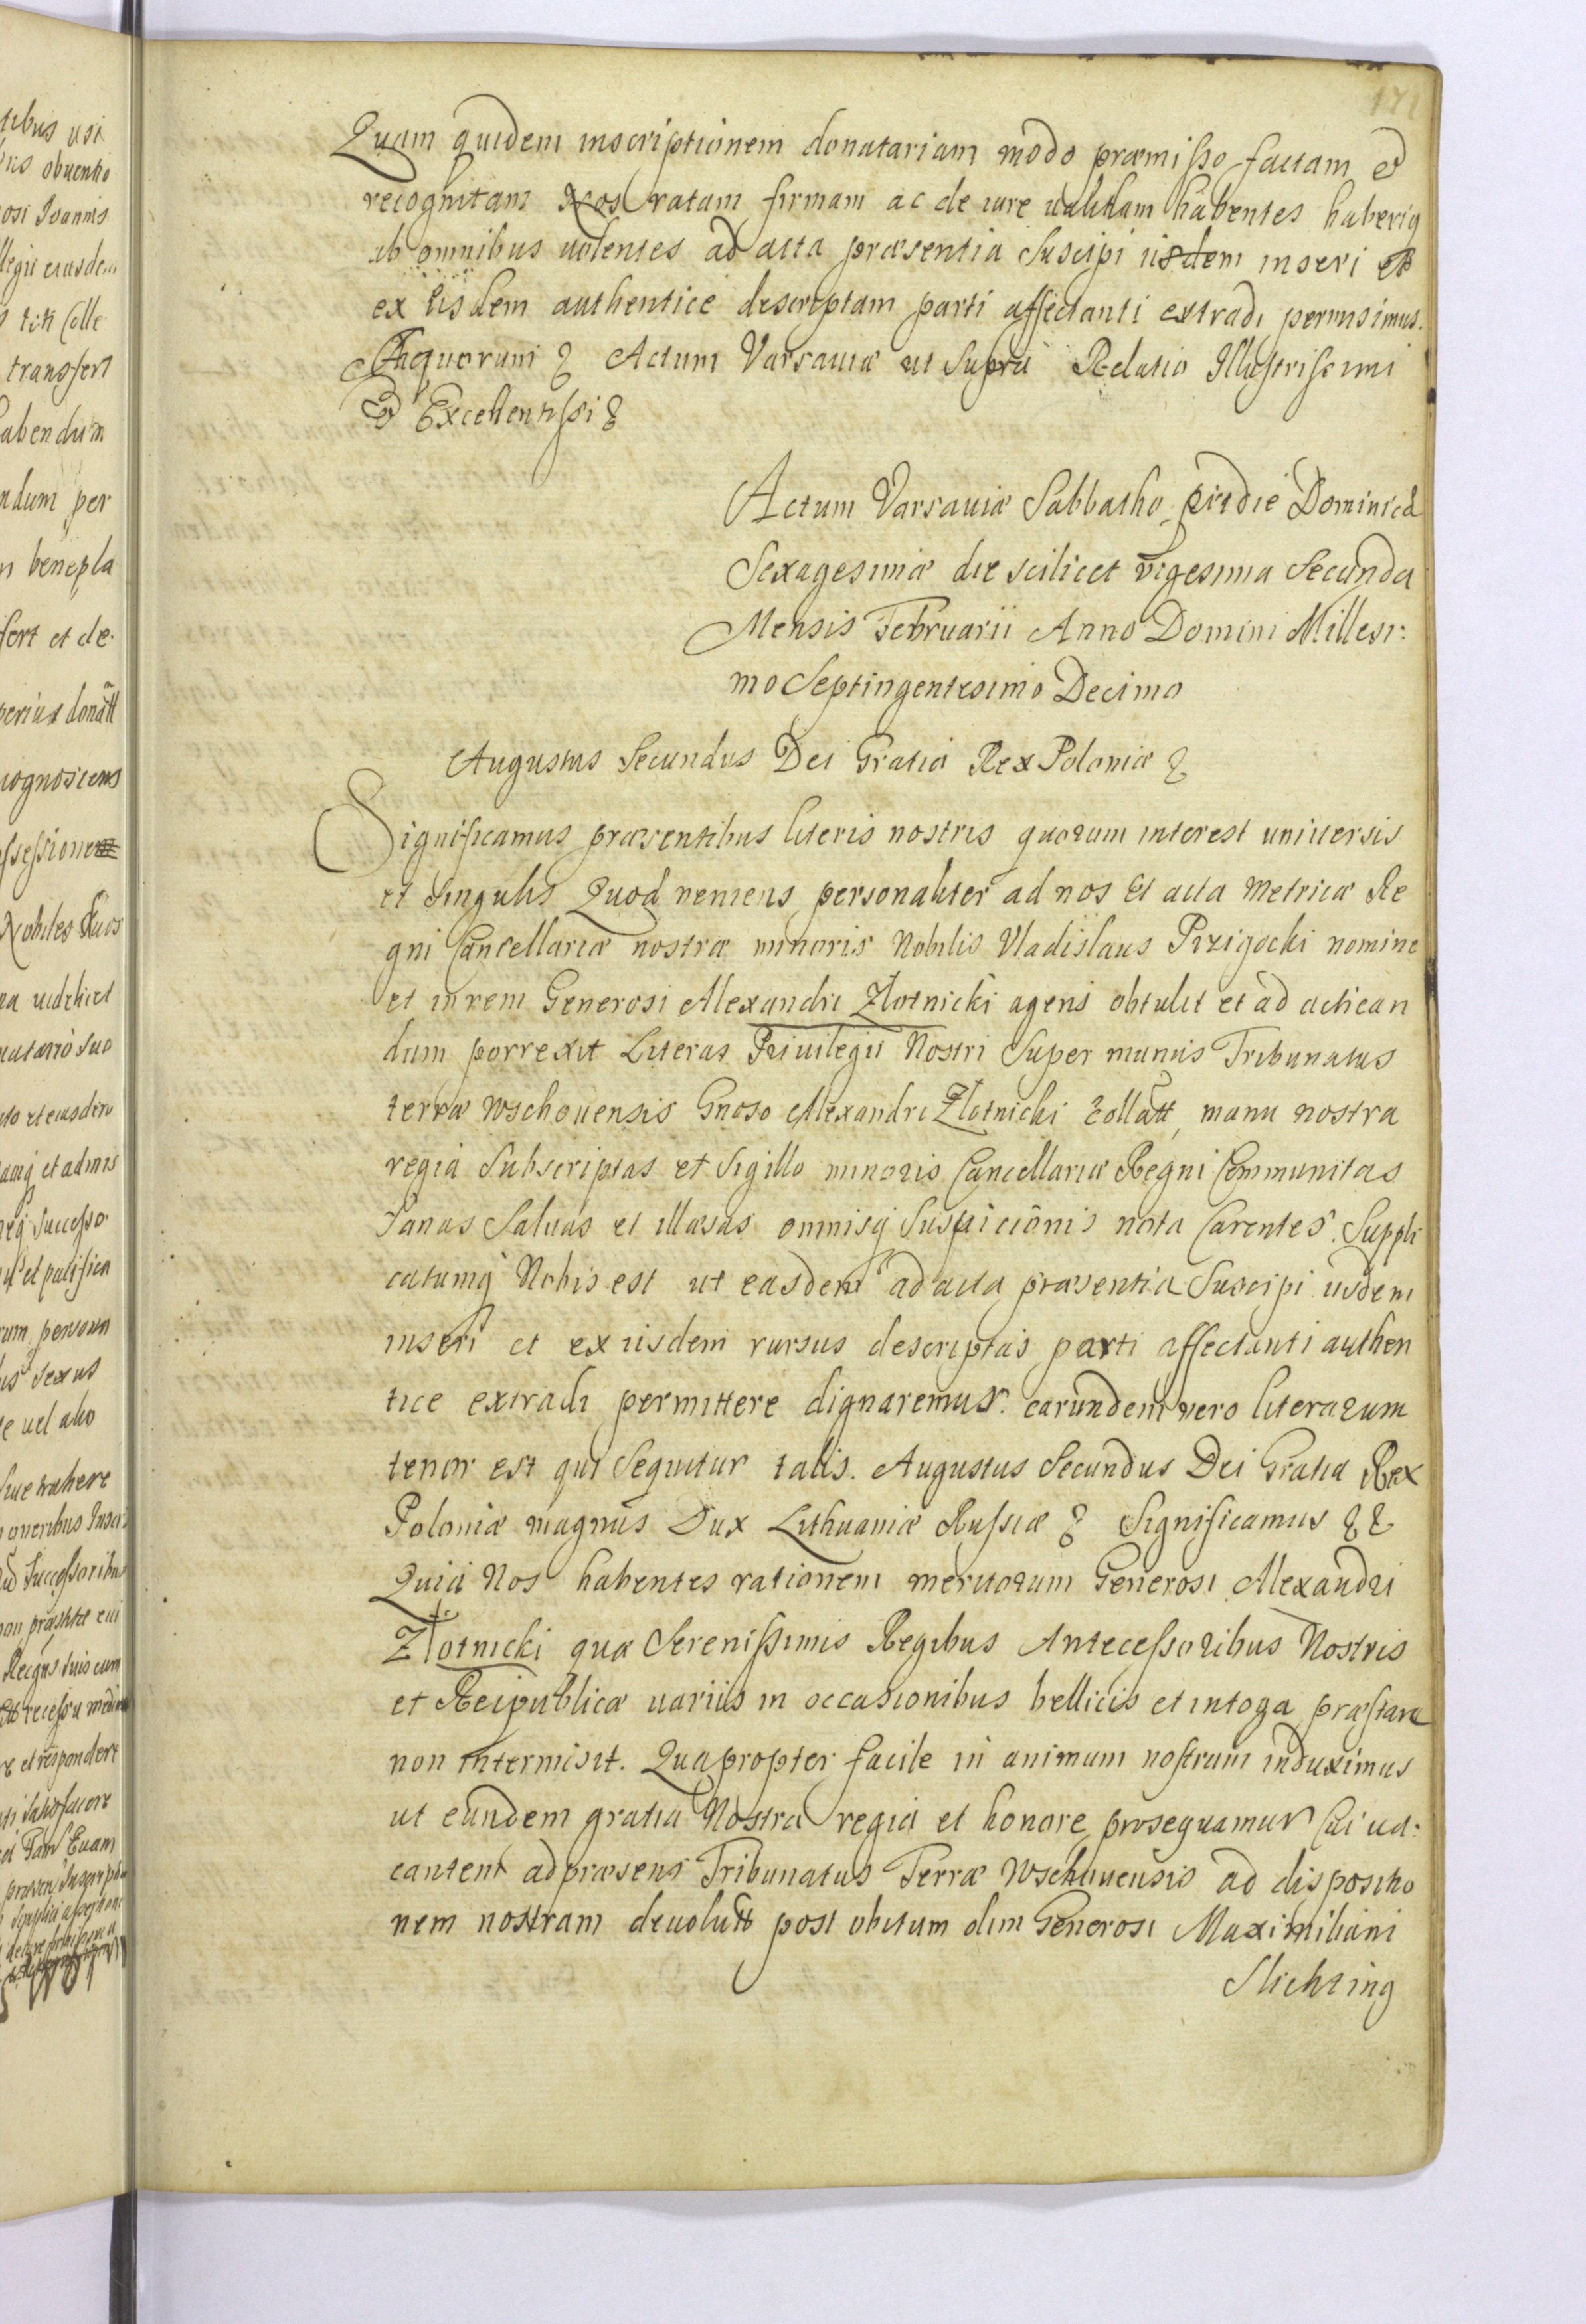 171
Quam quidem inscriptionem donatariam modo præmisso factam et
recognitam Nos ratam firmam ac de iure ualidam habentes haberiq
ab omnibus uolentes ad acta præsentia suscipi iisdem inseri et
ex iisdem authentice descriptam parti affectanti extradi permisimus.
Actum Varsauiæ ut supra Relatio Illustrissimi
et Excellentissi &
Actum Varsauiæ Sabbatho pridie Dominicæ
Sexagesimæ die scilicet vigesima Secunda
Mensis Februarii Anno Domini Millesi:
mo Septingentesimo Decimo
Augustus Secundus Dei Gratia Rex Poloniæ &
Significamus præsentibus literis nostris quorum interest uniuersis
et singulis Quod veniens personaliter ad nos et acta Metricæ Re
gni Cancellariæ nostræ minoris Nobilis Vladislaus Przigocki nomine
et in rem Generosi Alexandri Zlotnicki agens obtulit et ad actican
dum porrexit Literas Priuilegii Nostri super munus Tribunatus
terræ Wschouensis Gnoso Alexandri Zlotnicki collatt, manu nostra
regia subscriptas et sigillo minoris Cancellariæ Regni Communitas
Sanas Saluas et illæsas omnisq suspicionis nota Carentes. Suppli
catumq Nobis est ut easdem ad acta præsentia suscipi iisdem
inseri et ex iisdem rursus descriptas parti affectanti authen
tice extradi permittere dignaremur. earundem vero literarum
tenor est qui sequitur talis. Augustus Secundus Dei Gratia Rex
Poloniæ magnus Dux Lithuaniæ Russiæ & Significamus & &
Quia Nos habentes rationem meritorum Generosi Alexandri
Zlotnicki quæ Serenissimis Regibus Antecessoribus Nostris
et Reipublicæ uariis in occasionibus bellicis et in toga præstare
non intermisit. Quapropter facile in animum nostrum induximus
ut eundem gratia Nostra regia et honore prosequamur Cui ua:
cantem ad præsens Tribunatus Terræ Wschouensis ad dispositio
nem nostram deuolutt post obitum olim Generosi Maximiliani
Slichting